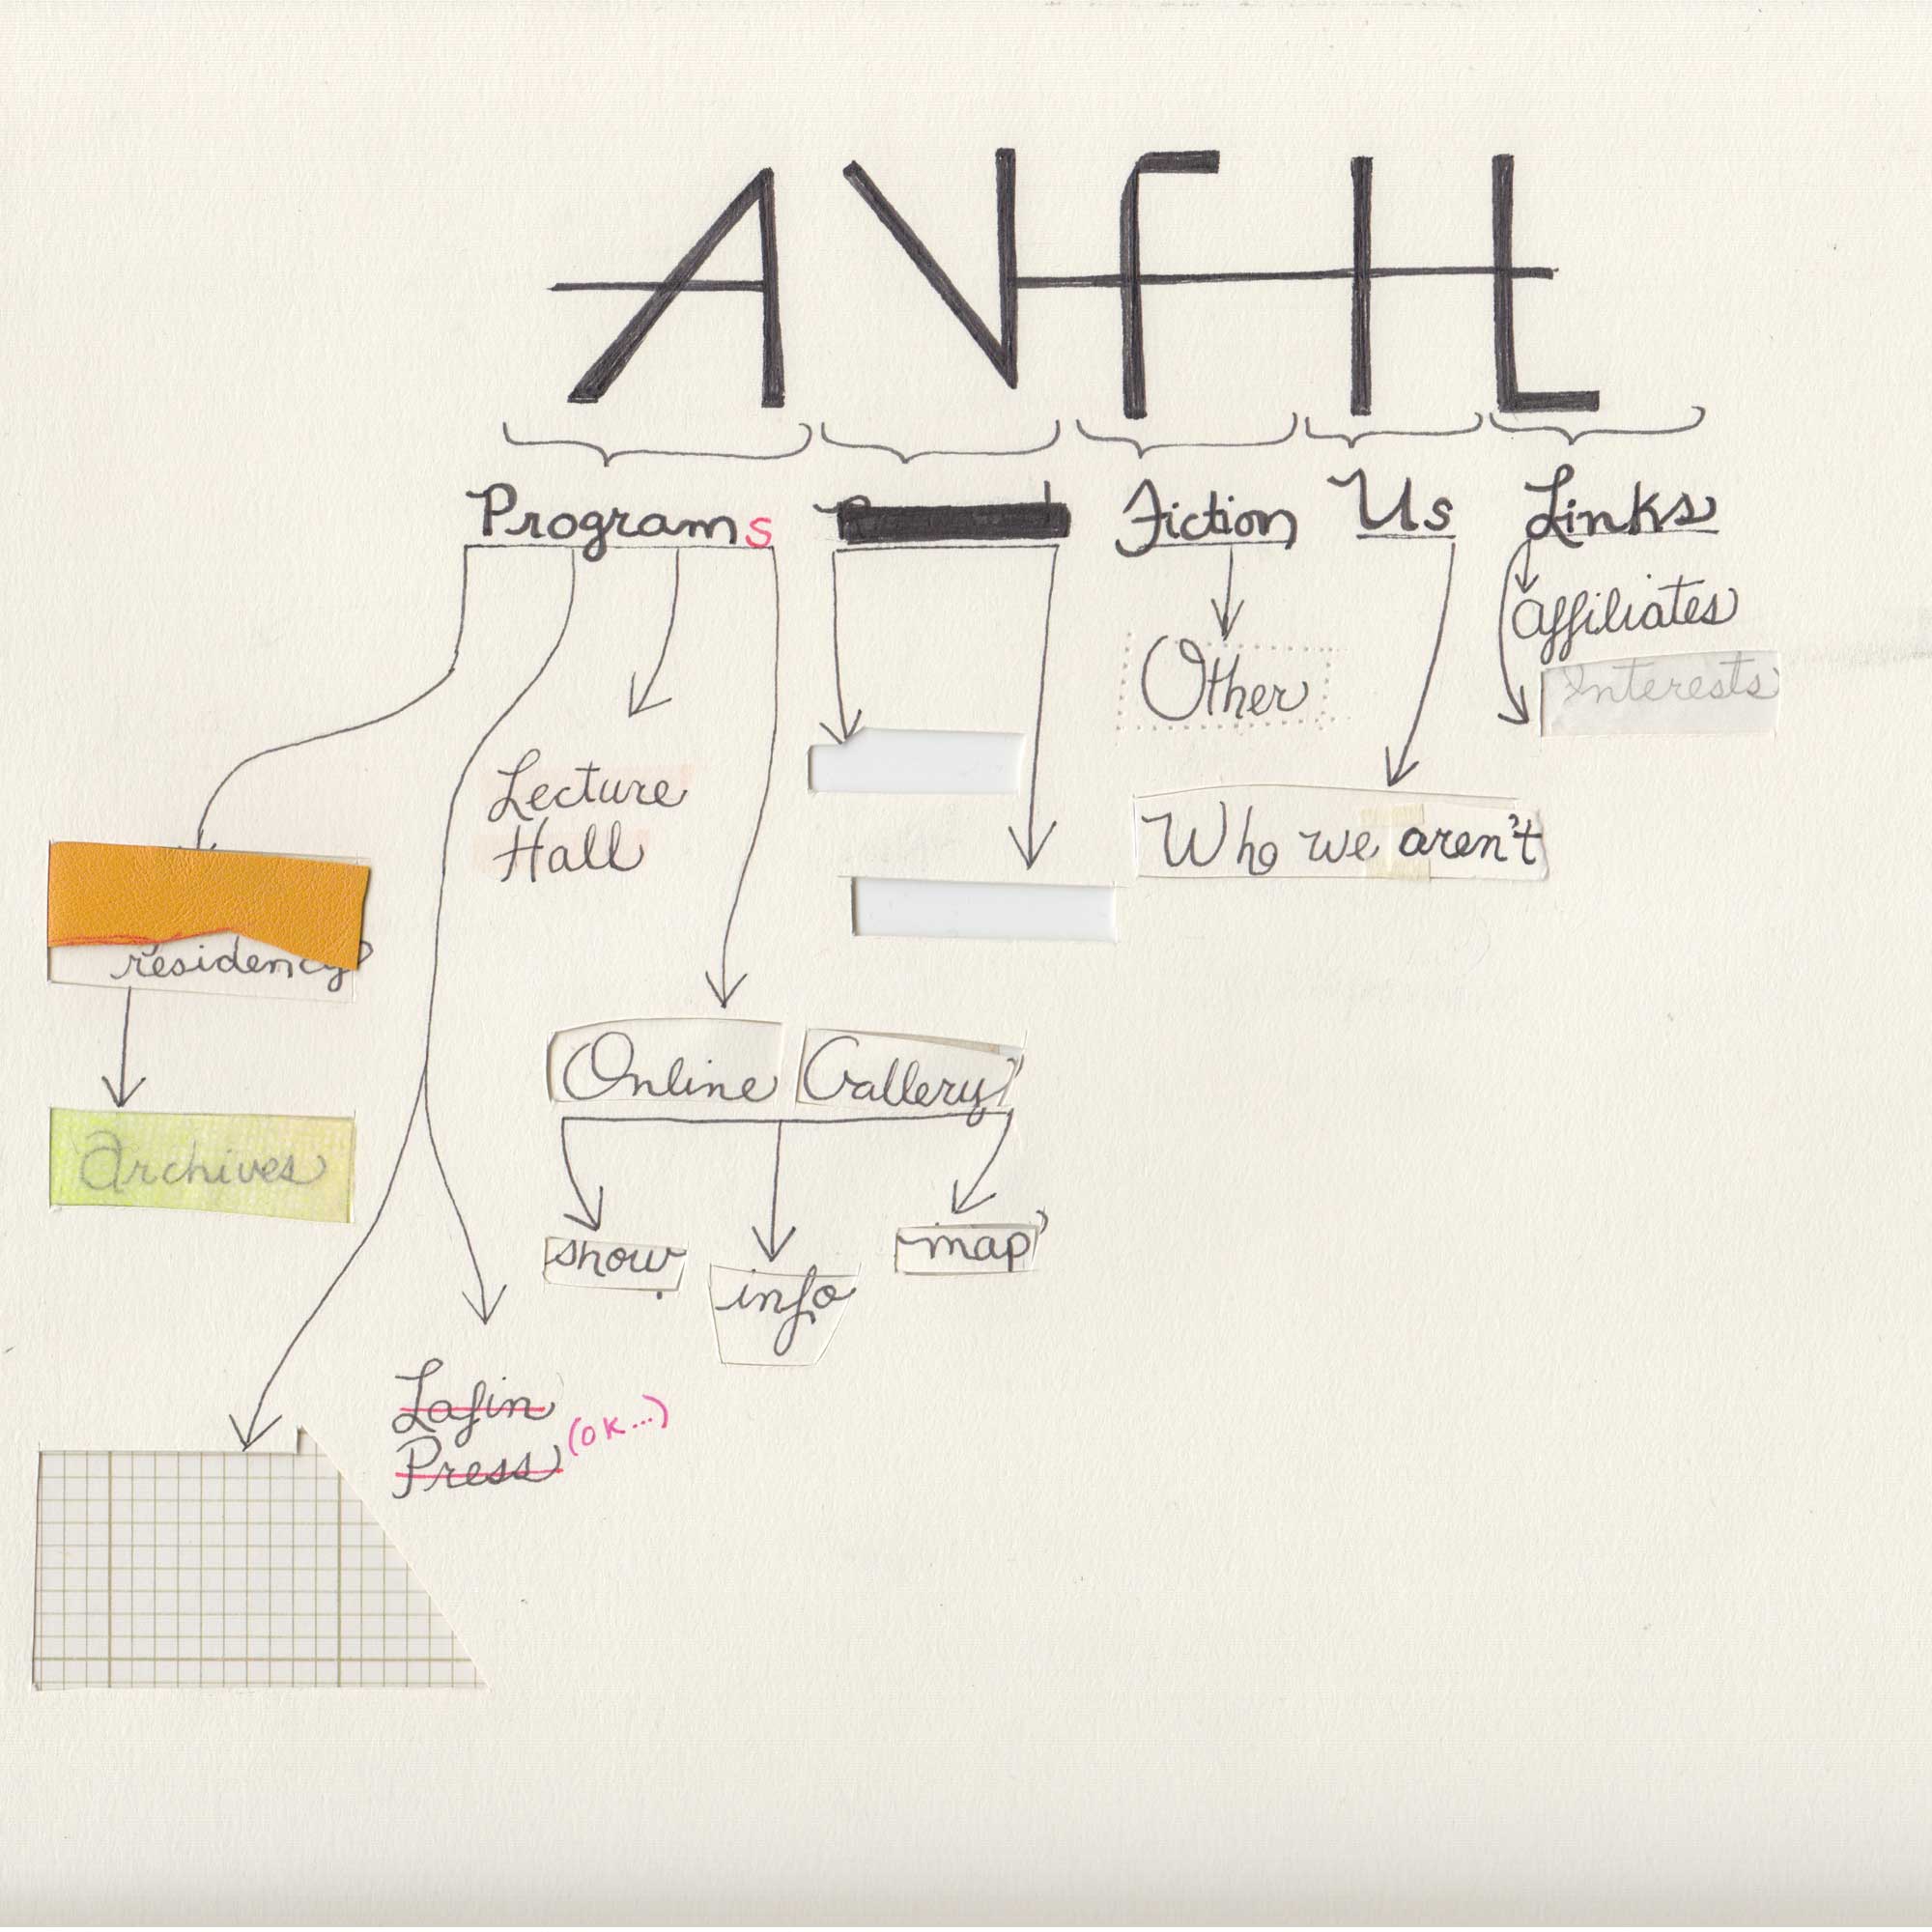 ANFIL
Programs
Fiction
Us
Links
affiliates
Interests
Other
Lecture
Hall
Who we aren't
residency
Online Gallery
Archives
show
info
map
Lafin
Press (OK...)